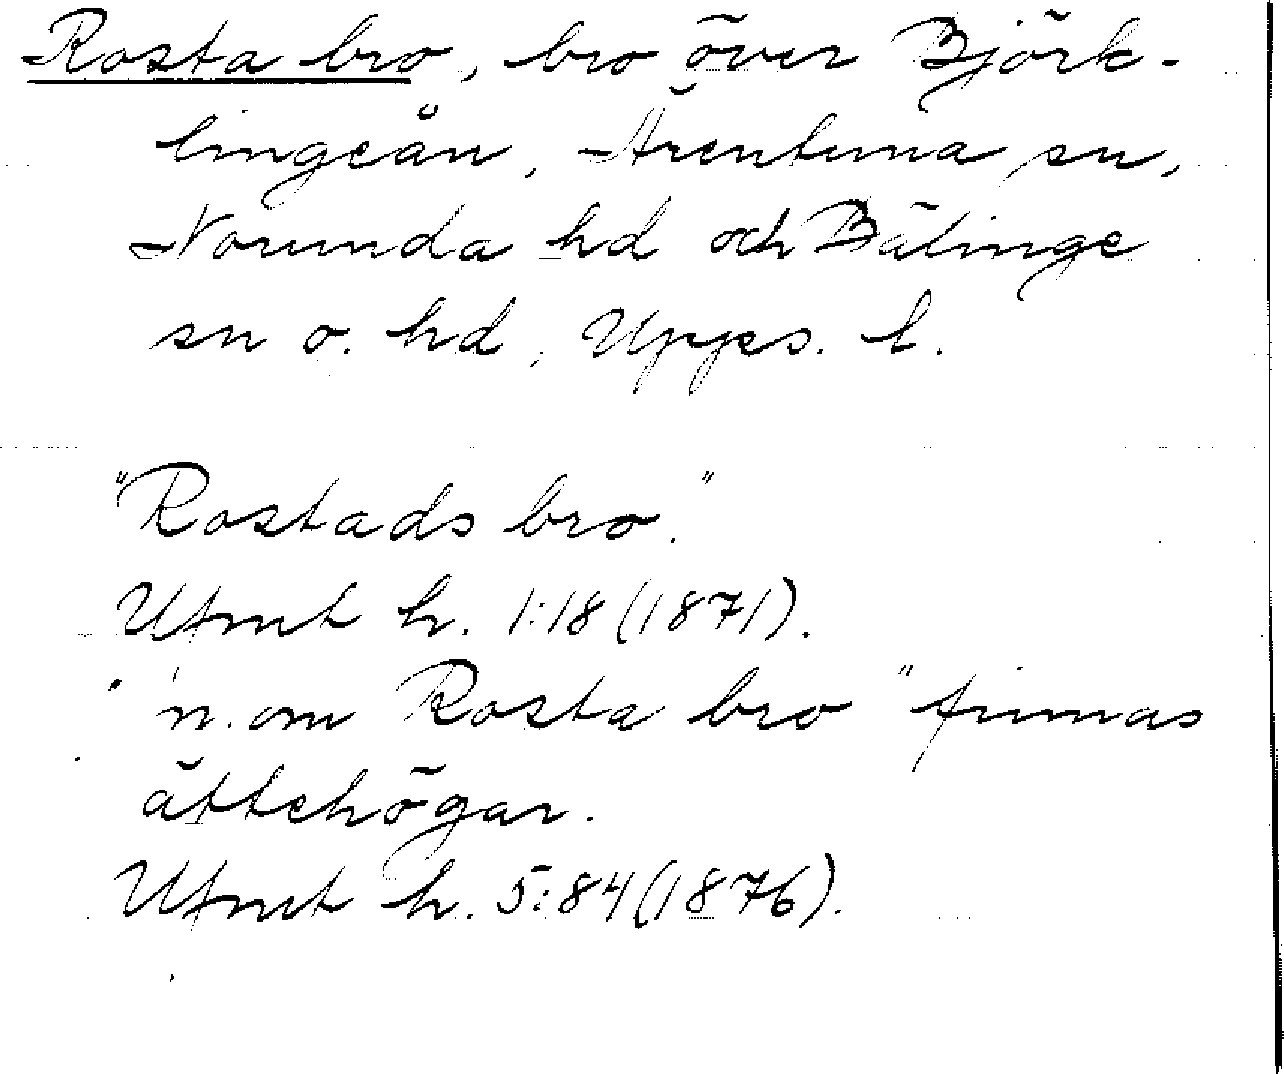 Rosta bro, bro över Björk-
lingeån, Ärentuna sn,
Norunda hd och Bälinge
sn o. hd, Upps. l.
"Rostads bro."
Ufmt h. 1:18 (1871).
"n. om Rosta bro" finnas
ättehögar.
Ufmt h. 5:84 (1876).